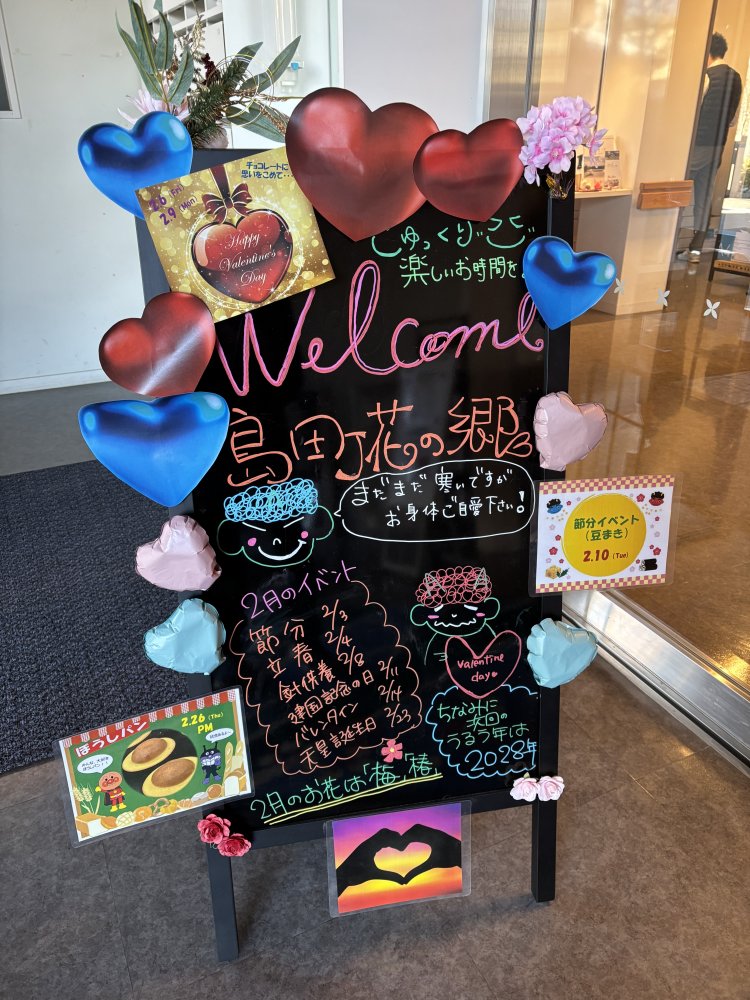 チョコレートに
思いをこめて・・・
2.6 (Fri)
2.9 (Mon)
Happy
Valentine's
Day
じゅっくりごじ
楽しいお時間を♪
Welcome
島田町花の郷
まだまだ寒いですが
お身体ご自愛下さい!
節分イベント
(豆まき)
2.10 (Tue)
2月のイベント
節分 2/3
立春 2/4
針供養 2/8
建国記念の日 2/11
バレンタイン 2/14
天皇誕生日 2/23
valentine
day♥
ちなみに
次回の
うるう年は
2028年
2月のお花は「梅」「椿」
2.26 (Thu)
PM
ぼうしパン
みんな、大好き
ぼうしパン!!